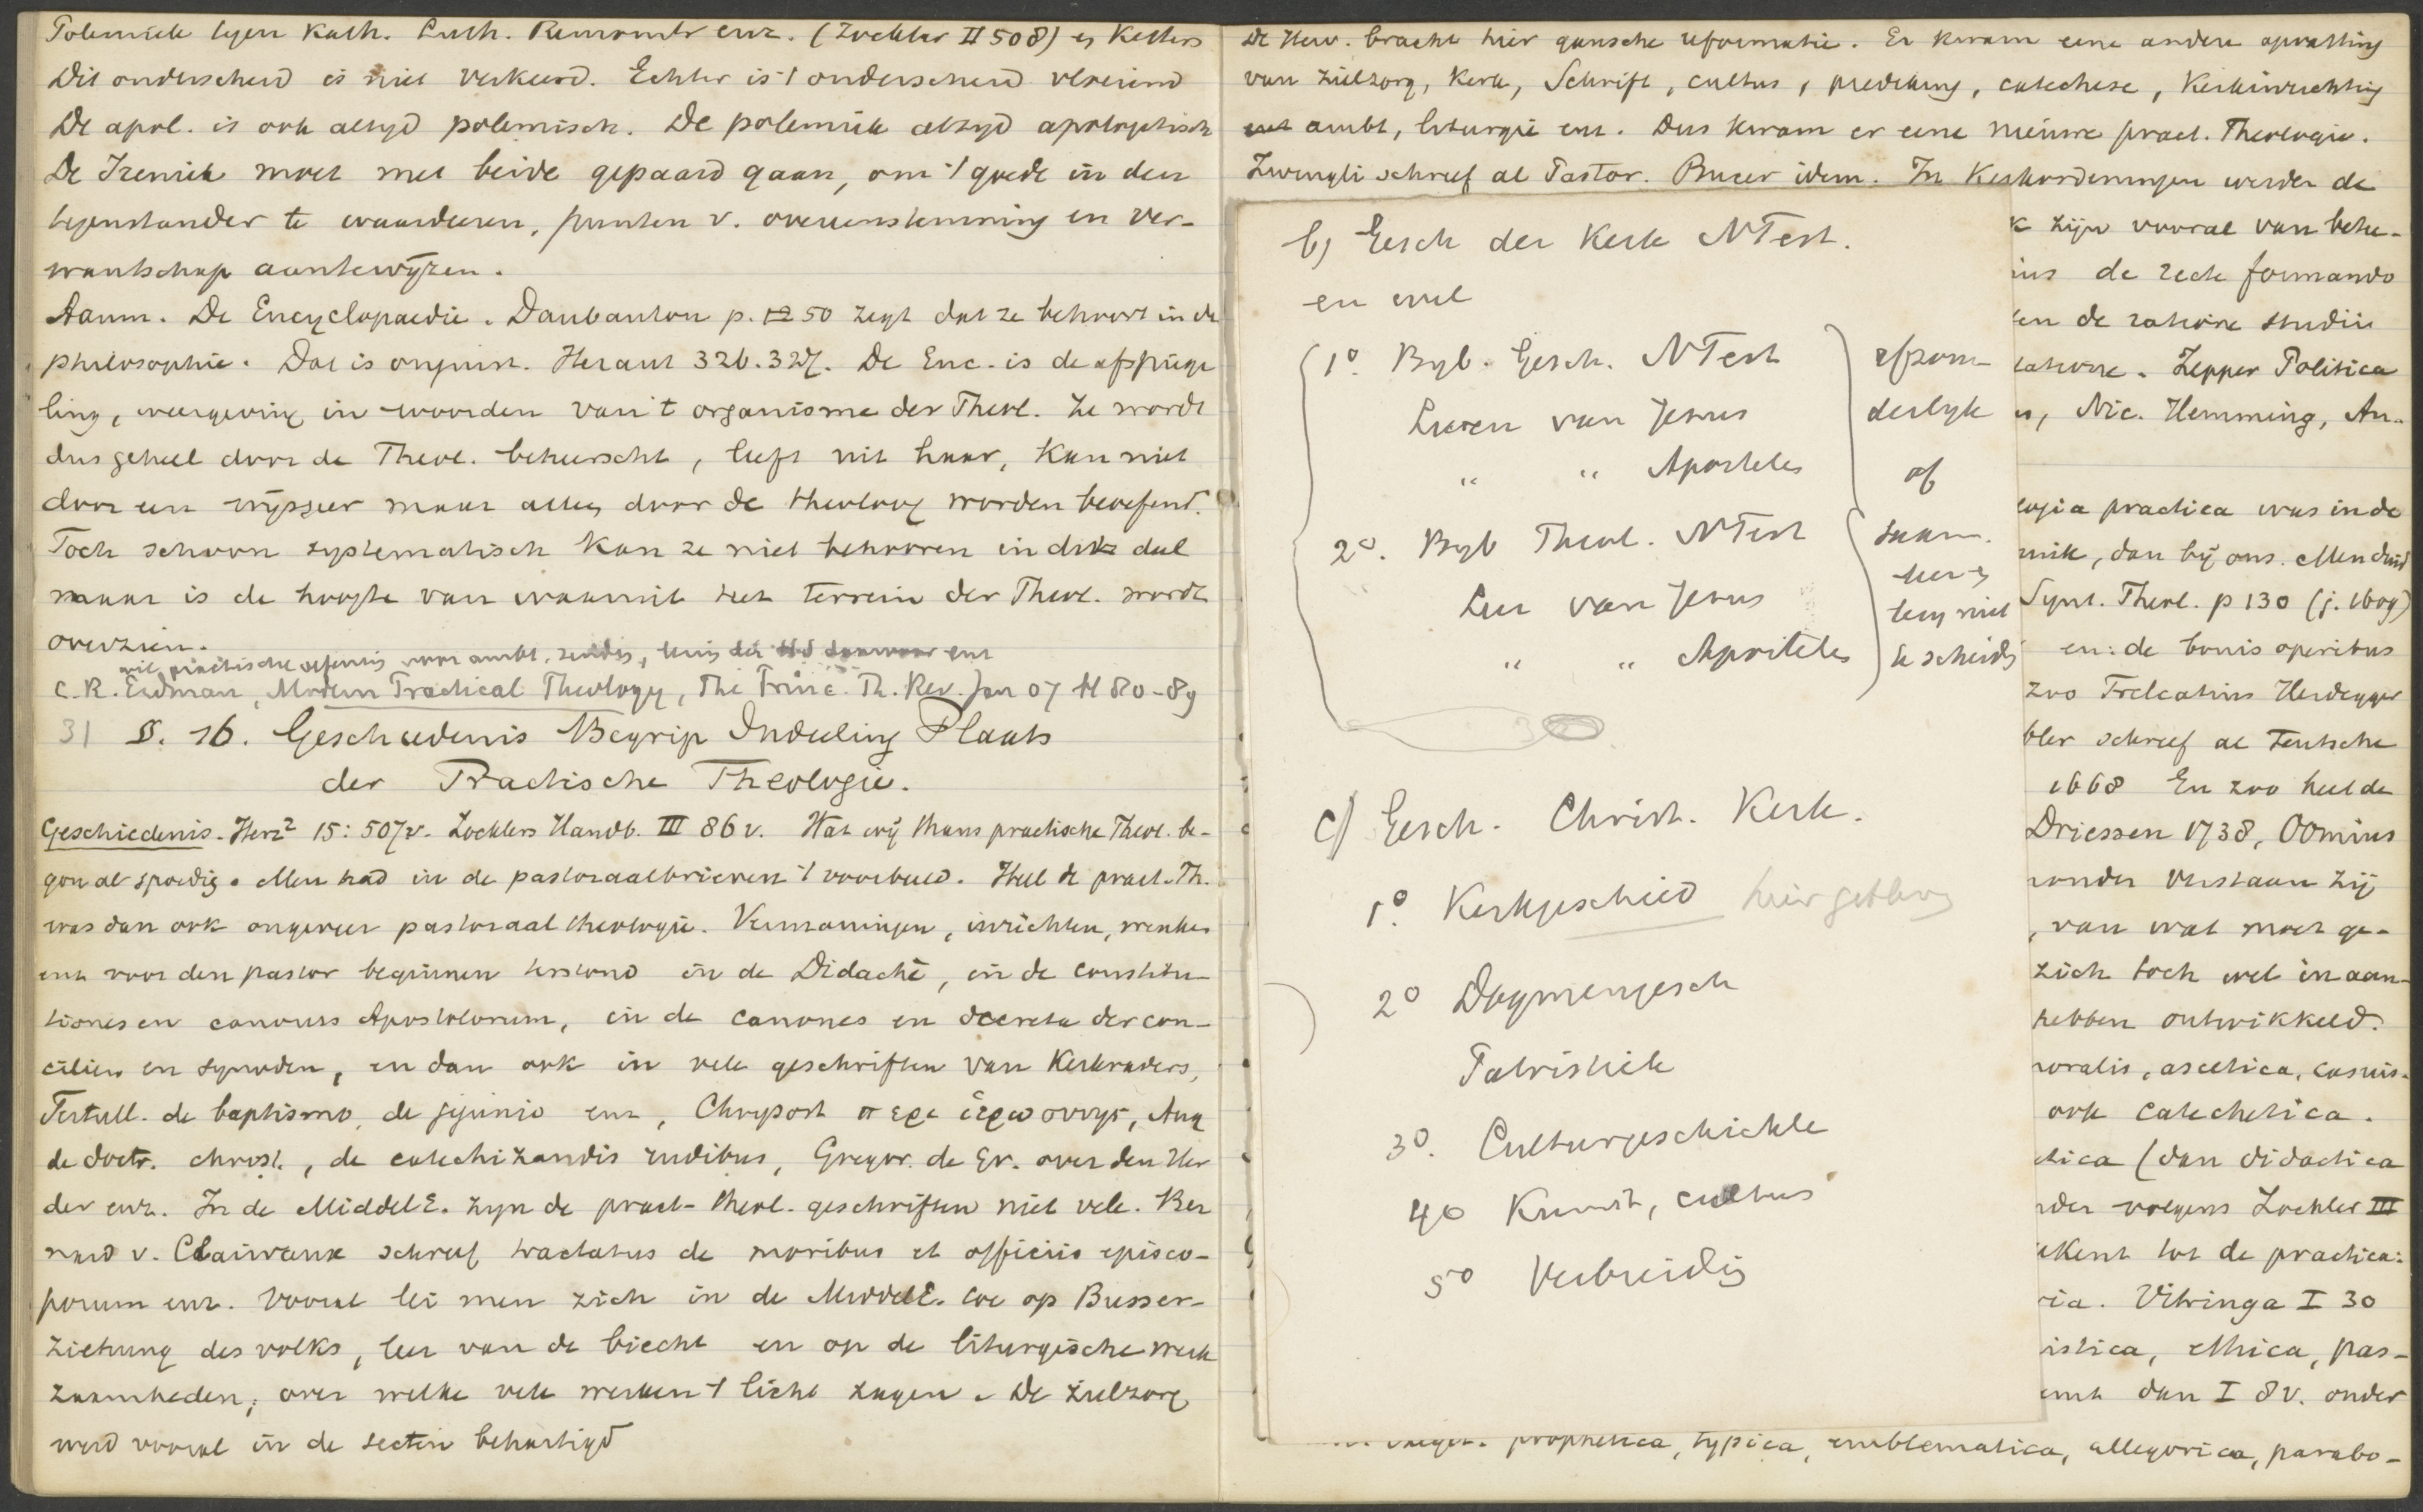 Polemiek tegen Kath. Luth. Remonstr enz. (Zockler II 508) en Ketters
Dit onderscheid is niet verkeerd. Echter is 't onderscheid vloeiend
De apol. is ook altyd polemisch. De polemiek altyd apologetisch
De Ireniek moet met beide gepaard gaan, om 't goede in den
tegenstander te waardeeren, punten v. overeenstemming en ver-
wantschap aantewyzen.
Aanm. De Encyclopaedie. Daubanton p. 50 zegt dat ze behoort in de
philosophie. Dat is onjuist. Heraut 326. 327. De Enc. is de afspiege
ling, weergeving in woorden van 't organisme der Theol. Ze wordt
dus geheel door de Theol. beheerscht, leeft uit haar, kan niet
door een wijsgeer maar alleen door de theoloog worden beoefend.
Toch schoon systematisch kan ze niet behooren in dit deel
maar is de hoogte van waaruit het terrein der Theol. wordt
overzien.
wil practische oefening voor ambt, zending, enz
C. R. Erdman, Modern Practical Theology, The Princ. Th. Rev. Jan 07 bl 80-89
31 §. 16. Geschiedenis Begrip Indeeling Plaats
der Practische Theologie.
Geschiedenis. Herz² 15: 507v. Zocklers Handb. III 86 v. Wat wij thans practische Theol. be-
gon al spoedig. Men had in de pastoraalbrieven 't voorbeeld. Heel de pract. Th.
was dan ook ongeveer pastoraal theologie. Vermaningen, inrichten, wenken
enz voor den pastor beginnen terstond in de Didachè, in de constitu-
tiones en canones Apostolorum, in de canones en decreta der con-
cilien en synoden, en dan ook in vele geschriften van Kerkvaders,
Tertull. de baptismo, de jejunio enz, Chrysost περι ἱερωσυνης, Aug
de doctr. christ., de catechizandis rudibus, Gregor. de Gr. over den Her
der enz. In de MiddelE. zyn de pract-theol. geschriften niet vele. Ber
nard v. Clairvaux schreef tractatus de moribus et officiis episco-
porum enz. Vooral lei men zich in de MiddelE. toe op Busser-
ziehung des volks, leer van de biecht en op de liturgische werk
zaamheden, over welke vele werken 't licht zagen. De zielzorg
werd vooral in de secten behartigd
De Herv. bracht hier gansche reformatie. Er kwam eene andere opvatting
van zielzorg, Kerk, Schrift, cultus, prediking, catechese, Kerkinrichting
ambt, liturgie enz. Dus kwam er eene nieuwe pract. Theologie.
Zwingli schreef al Pastor. Bucer idem. In Kerkordeningen werden de
k zijn vooral van bete-
ius de recte formando
en de ratione studii
tatione. Zepper Politica
s, Nic. Hemming, An-
logia practica was in de
miek, dan bij ons. Men
Synt. Theol. p 130 (j. 1609)
en: de bonis operibus
zoo Trelcatius Heidegger
bler schreef al Teutsche
1668 En zoo heel de
Driessen 1738, Oomius
ronder verstaan zij
, van wat moet ge-
zich toch wel in aan-
hebben ontwikkeld.
moralis, ascetica, casuis-
ook catechetica.
etica (dan didactica
rder volgens Zockler III
ekent tot de practica:
ria. Vitringa I 30
istica, ethica, pas-
emt dan I 8 v. onder
prophetica, typica, emblematica, allegorica, parabo-
b) Gesch der Kerk NTest.
en wel
1º. Byb. Gesch. NTest
Leven van Jezus
" " Apostelen
2º. Byb Theol. NTest
Leer van Jezus
" " Apostelen
afzon-
derlyk
of
saam.
leer en
leven niet
te scheiden
c) Gesch. Christ. Kerk.
1º. Kerkgeschied
2º Dogmengesch
Patristiek
3º. Culturgeschichte
4º Kunst, cultus
5º Verbreiding